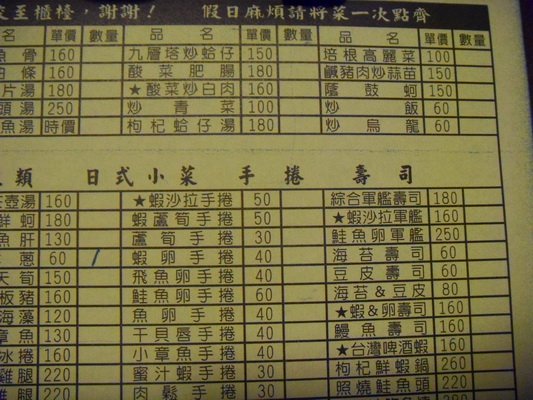 交至櫃檯，謝謝！ 假日麻煩請將菜一次點齊
名 單價 數量 品名 單價 數量 品名 單價 數量
魚骨 160 九層塔炒蛤仔 150 培根高麗菜 100
油條 160 酸菜肥腸 180 鹹豬肉炒蒜苗 150
片湯 180 ★酸菜炒白肉 160 蔭鼓蚵 150
頭湯 250 炒青菜 100 炒飯 60
魚湯 時價 枸杞蛤仔湯 180 炒烏龍 60
類 日式小菜 手捲 壽司
壺湯 160 ★蝦沙拉手捲 50 綜合軍艦壽司 180
鮮蚵 180 蝦蘆筍手捲 50 ★蝦沙拉軍艦 160
魚肝 130 蘆筍手捲 30 鮭魚卵軍艦 250
蔥 60 / 蝦卵手捲 40 海苔壽司 60
天筍 150 飛魚卵手捲 40 豆皮壽司 60
板豬 160 鮭魚卵手捲 60 海苔&豆皮 80
海藻 120 魚卵手捲 40 ★蝦&卵壽司 160
章魚 130 干貝唇手捲 40 鰻魚壽司 160
冰捲 160 小章魚手捲 40 ★台灣啤酒蝦 160
雞腿 220 蜜汁蝦手捲 30 枸杞鮮蝦鍋 260
雞腿 220 肉鬆手捲 30 照燒鮭魚頭 220